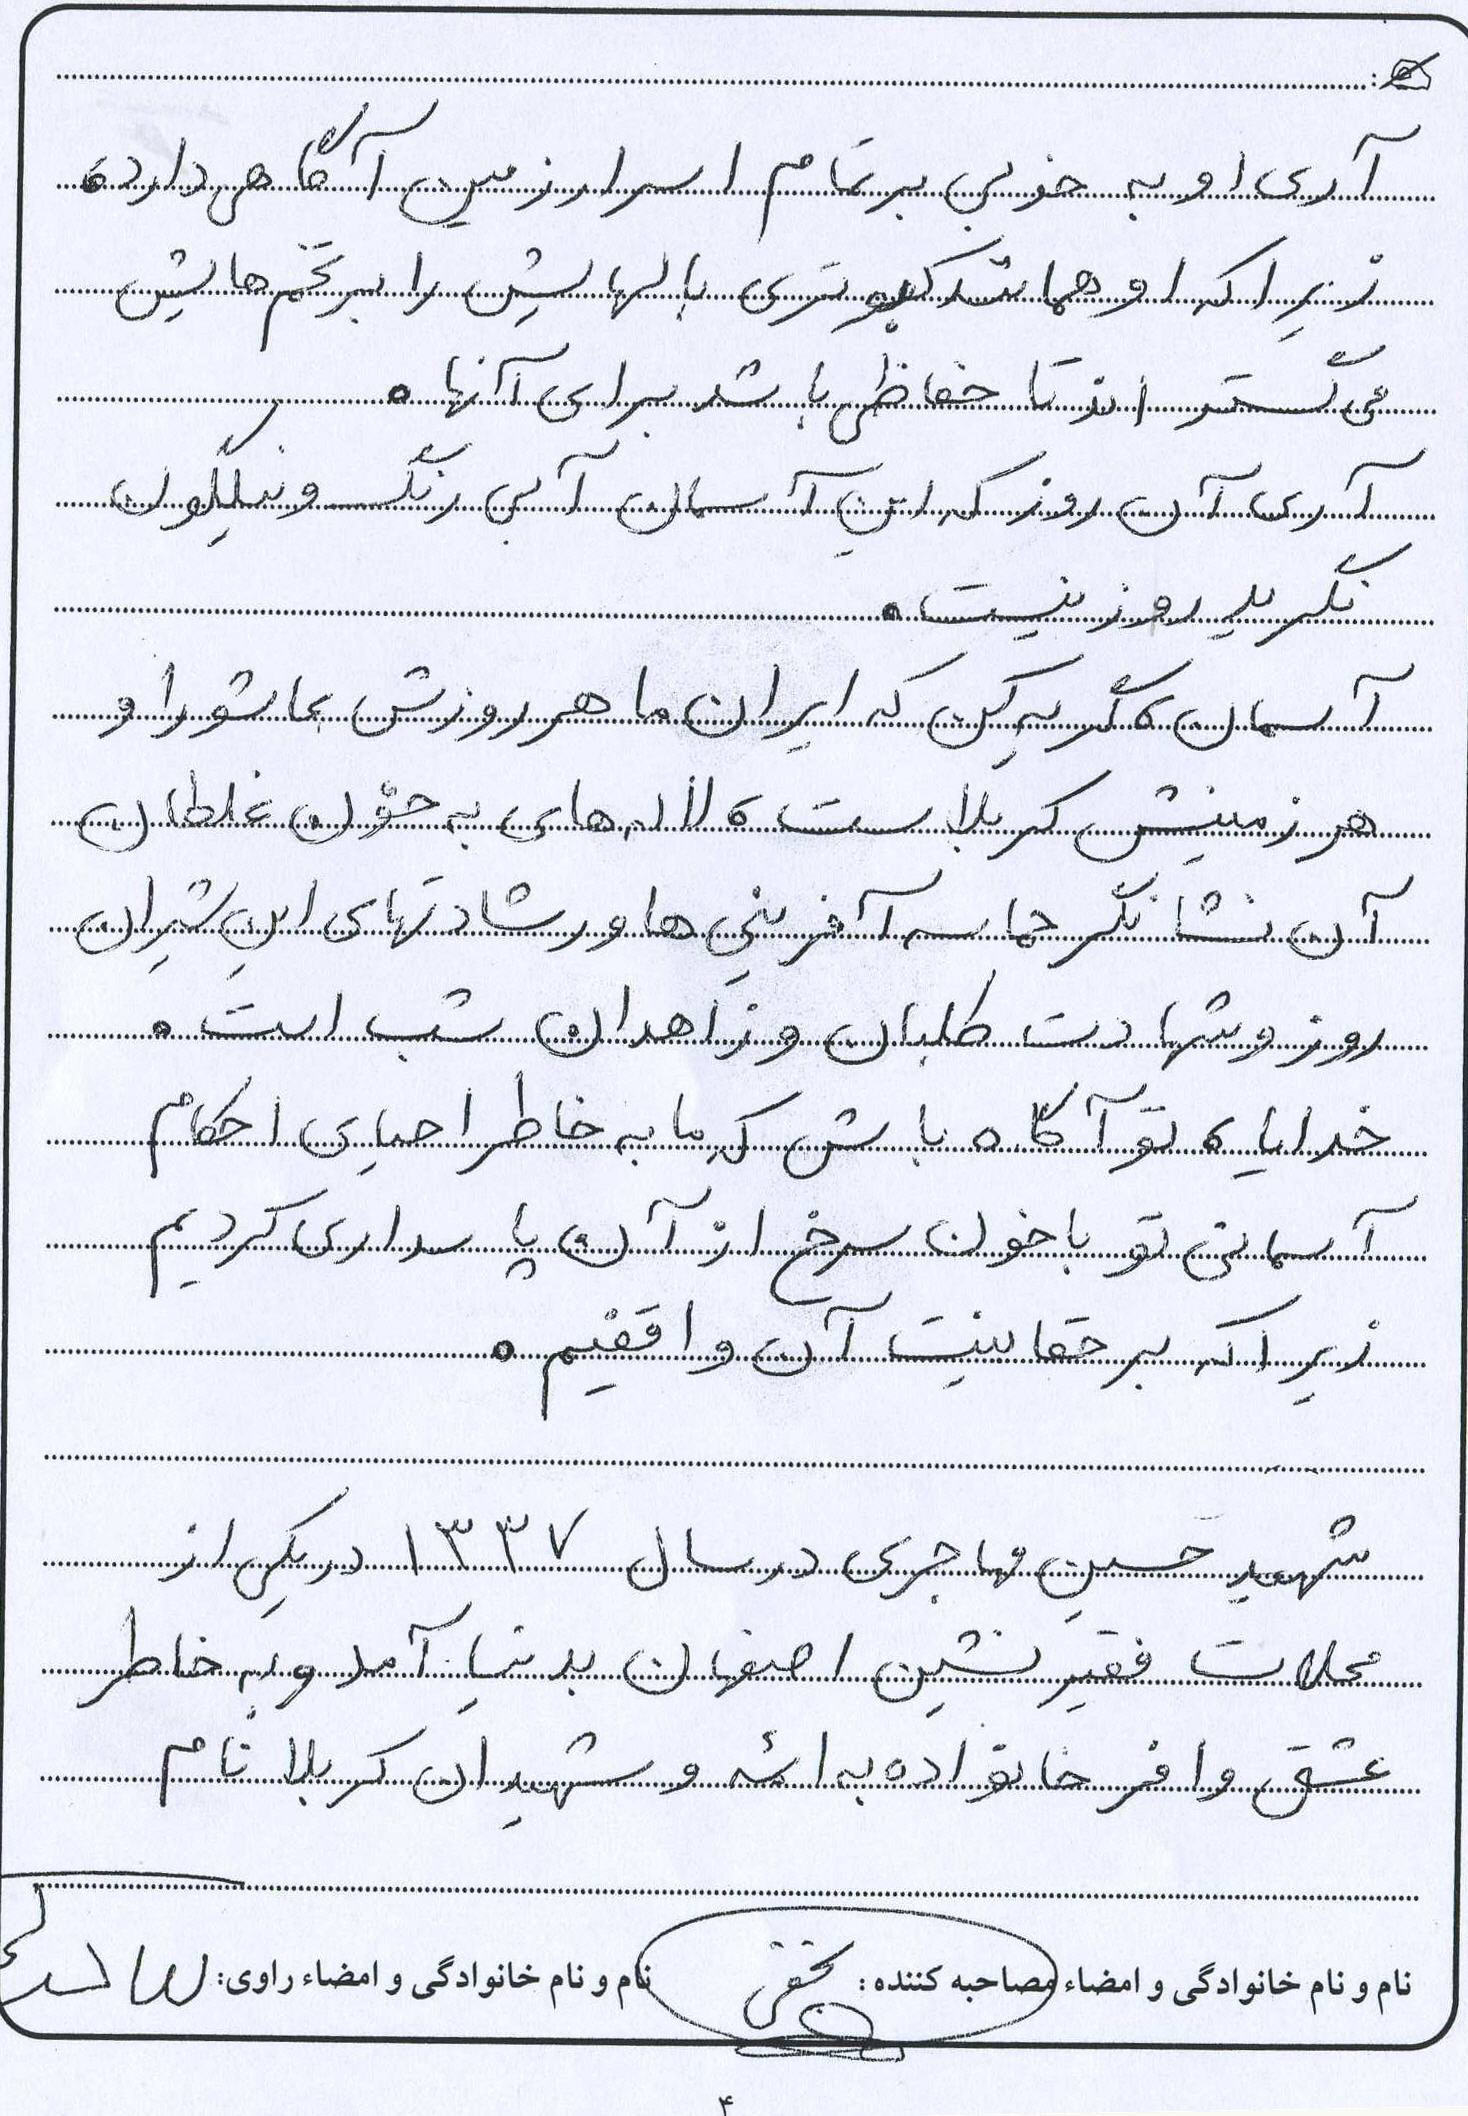 آری او به خوبی بر تمام اسرار زمین آگاهی دارد،
زیرا که او همانند کبوتری بالهایش را بر تخم هایش
می گستر اند تا حفاظی باشد برای آنها .
آری آن روز که این آسمان آبی رنگ و نیلگون
نگرید روز نیست .
آسمان، گریه کن که ایران ما هر روزش عاشورا و
هر زمینش کربلاست، لاله های به خون غلطان
آن نشانگر حماسه آفرینی ها و رشادتهای این شیران
روز و شهادت طلبان و زاهدان شب است .
خدایا، تو آگاه باش که ما به خاطر احیای احکام
آسمانی تو با خون سرخ از آن پاسداری کردیم
زیرا که بر حقانیت آن واقفیم .
شهید حسین مهاجری در سال ۱۳۳۷ در یکی از
محلات فقیر نشین اصفهان بدنیا آمد و به خاطر
عشق وافر خانواده به ائمه و شهیدان کربلا نام
نام و نام خانوادگی و امضاء مصاحبه کننده :
نام و نام خانوادگی و امضاء راوی:
۴